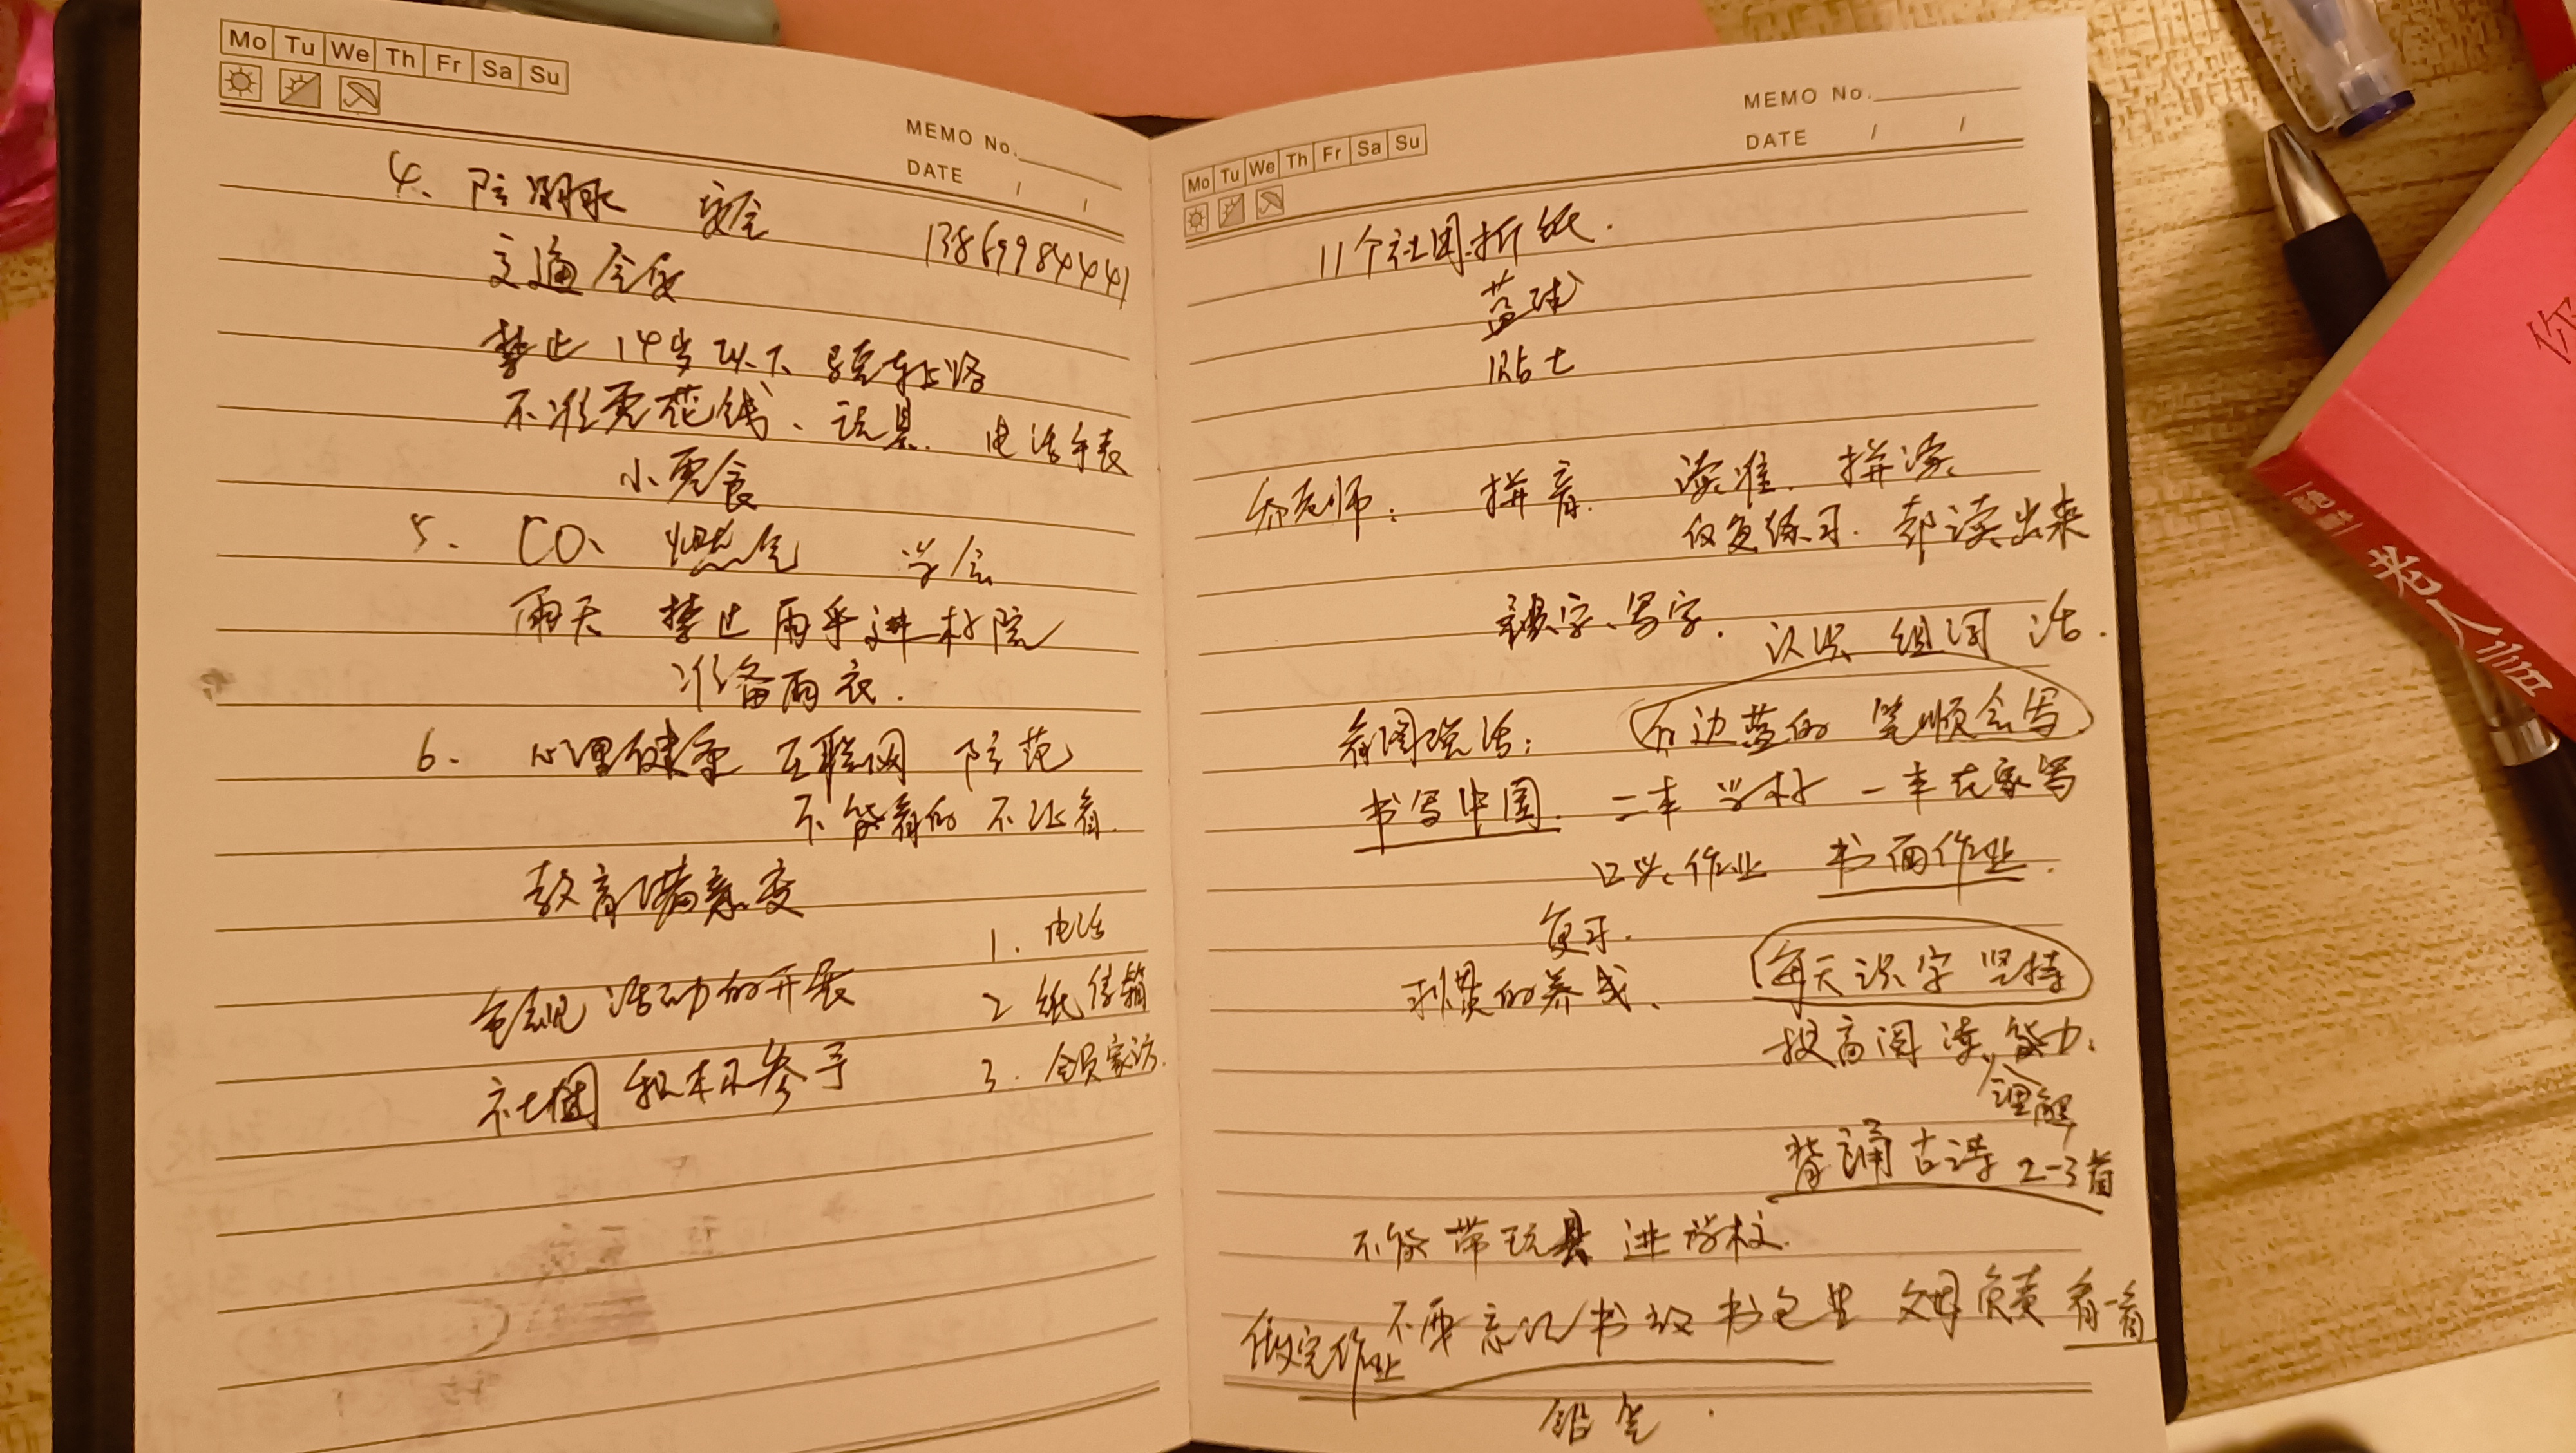 Mo Tu We Th Fr Sa Su
MEMO No.
DATE / /
4、防溺水 安全
13869984441
交通安全
禁止14岁以下骑车上路
不准零花钱、玩具、电话手表
小零食
5、CO、燃气 学会
雨天 禁止雨伞进校院
准备雨衣.
6、心理健康 互联网 防范
不能看的 不让看.
教育
1. 电话
活动的开展
2 纸信箱
社团 积极参予
3. 全员家访.
Mo Tu We Th Fr Sa Su
MEMO No.
DATE / /
11个社团折纸.
篮球
乔老师: 拼音. 读准. 拼读、
反复练习. 都读出来
识字、写字. 认识 组词 话.
看图说话: 右边蓝的 笔顺会写
书写中国. 二本 学校 一本在家写
口头作业 书面作业.
复习.
习惯的养成、 每天识字 坚持
提高阅读能力、
理解
背诵古诗 2-3首
不能带玩具进学校.
做完作业 不要忘记书放书包里 父母负责看一看
铅笔.
你
老人言